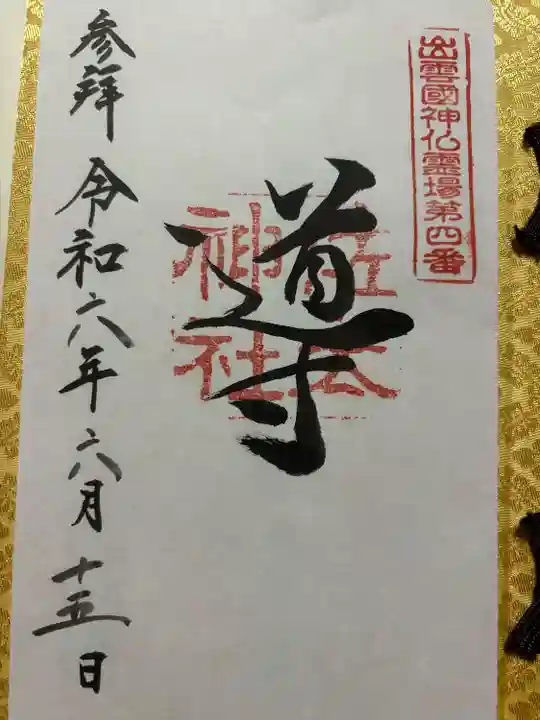 出雲國神仏靈場第四番
導
佐太
神社
参拜 令和六年六月十五日